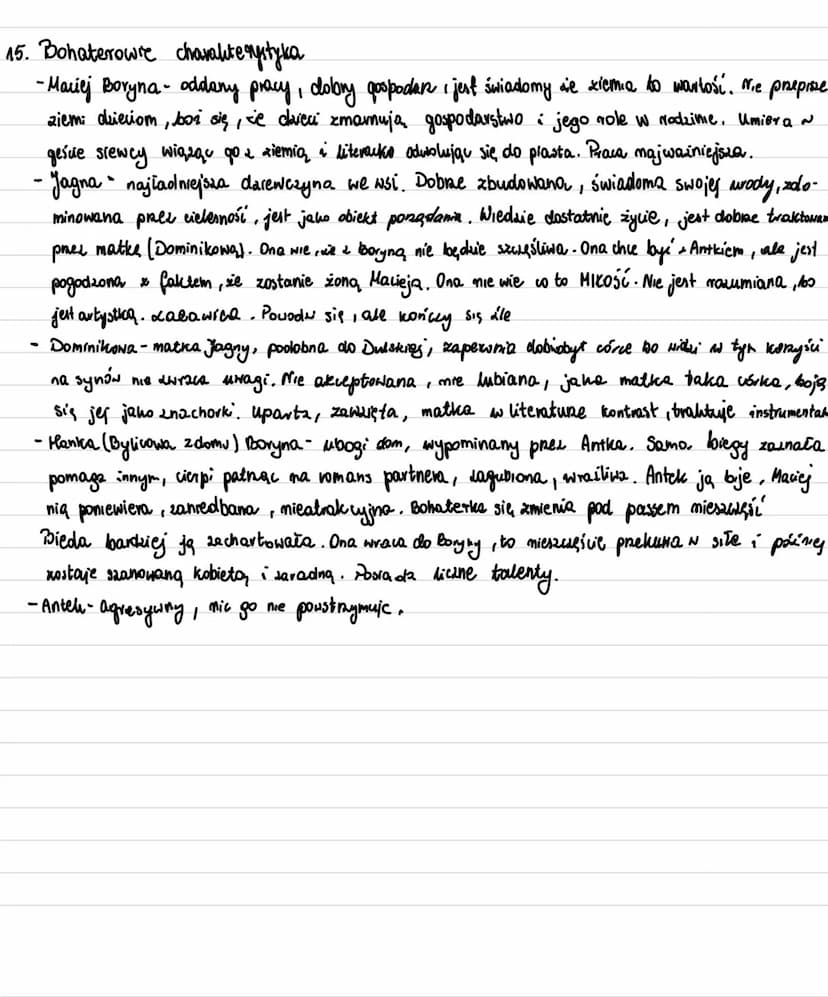 15. Bohaterowie charakterystyka
- Maciej Boryna - oddany pracy, dobry gospodarz i jest świadomy że ziemia to wartość. Nie przepisze
ziemi dzieciom, boi się, że dzieci zmarnują gospodarstwo i jego role w rodzinie. Umiera w
geście siewcy wiążąc go z ziemią i literacko odwołując się do piasta. Praca najważniejsza.
- Jagna - najładniejsza dziewczyna we wsi. Dobrze zbudowana, świadoma swojej urody, zdo-
minowana przez cielesność, jest jako obiekt pożądania. Wiedzie dostatnie życie, jest dobrze traktowana
przez matkę (Dominikową). Ona wie, że z Boryną nie będzie szczęśliwa. Ona chce być z Antkiem, ale jest
pogodzona z faktem, że zostanie żoną Macieja. Ona nie wie co to MIŁOŚĆ. Nie jest rozumiana, bo
jest artystką. Powodzi się, ale kończy się źle
- Dominikowa - matka Jagny, podobna do Dulskiej, zapewnia dobrobyt córce bo widzi w tym korzyści
na synów nie zwraca uwagi. Nie akceptowana, nie lubiana, jaka matka taka córka, boją
się jej jako znachorki. Uparta, zawzięta, matka w literaturze kontrast, traktuje instrumental
- Hanka (Bylicowa z domu) Boryna - ubogi dom, wypominany przez Antka. Sama biedy zaznała
pomaga innym, cierpi patrząc na romans partnera, zagubiona, wrażliwa. Antek ją bije, Maciej
nią poniewiera, zaniedbana, nieatrakcyjna. Bohaterka się zmienia pod pasem nieszczęść
Bieda bardziej ją zahartowała. Ona wraca do Boryny, to nieszczęście przekuwa w siłę i później
zostaje szanowaną kobietą i zaradną. Posiada liczne talenty.
- Antek - agresywny, nic go nie powstrzymuje.